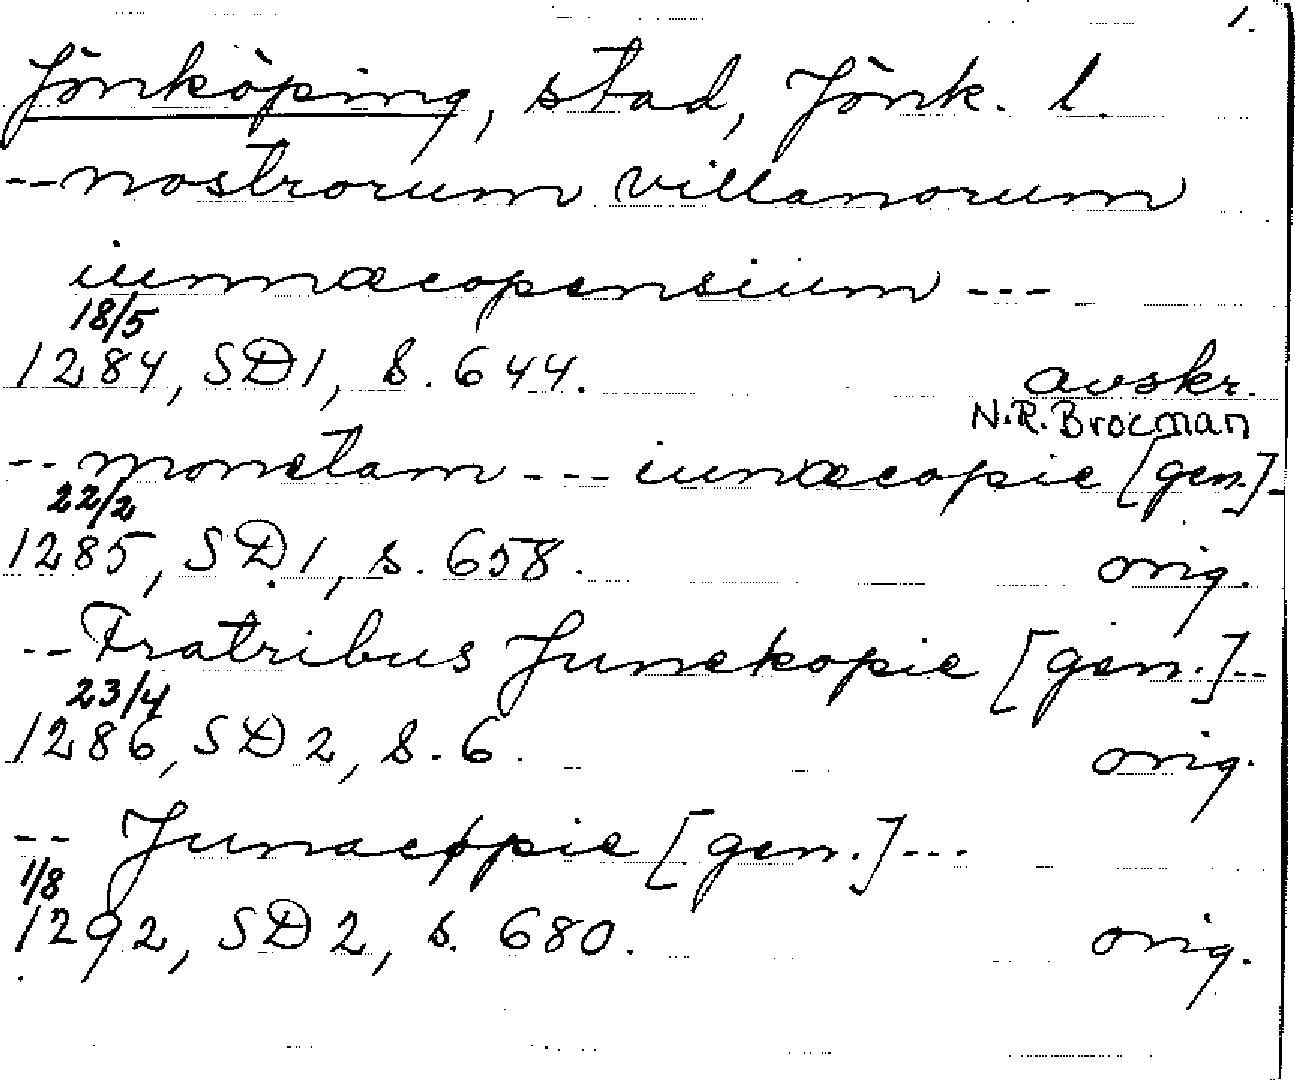 1.
Jönköping, stad, Jönk. l.
-- nostrorum villanorum
iunnæcopensium ---
18/5
1284, SD1, s. 644. avskr.
N.R. Brocman
-- monetam --- iunæcopie [gen.]-
22/2
1285, SD1, s. 658. orig.
-- Fratribus Junekopie [gen.]--
23/4
1286, SD2, s. 6. orig.
-- Junacopie [gen.]---
1/8
1292, SD2, s. 680. orig.